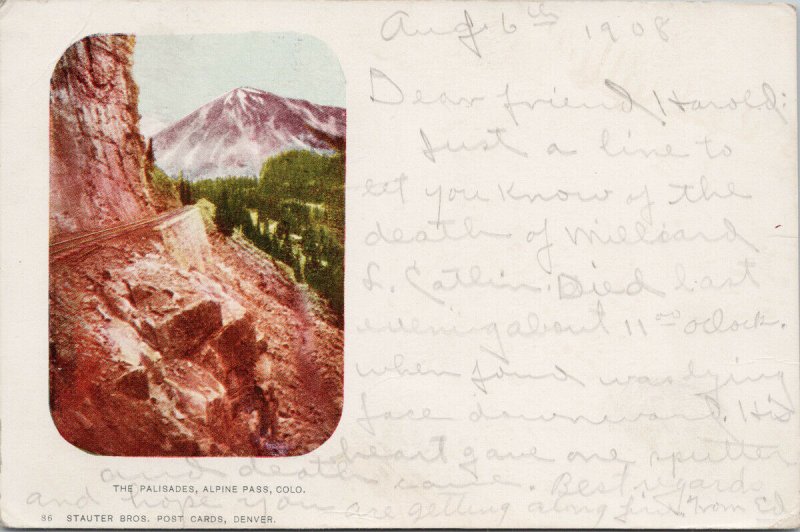 Aug 6th 1908
Dear friend Harold:
Just a line to
let you know of the
death of Milliard
L. Catlin. Died last
evening about 11 00 oclock.
when found was dying
face downward. His
heart gave one sputter
and death came. Best regards
and hope you are getting along fine. From Ed
THE PALISADES, ALPINE PASS, COLO.
86 STAUTER BROS. POST CARDS, DENVER.